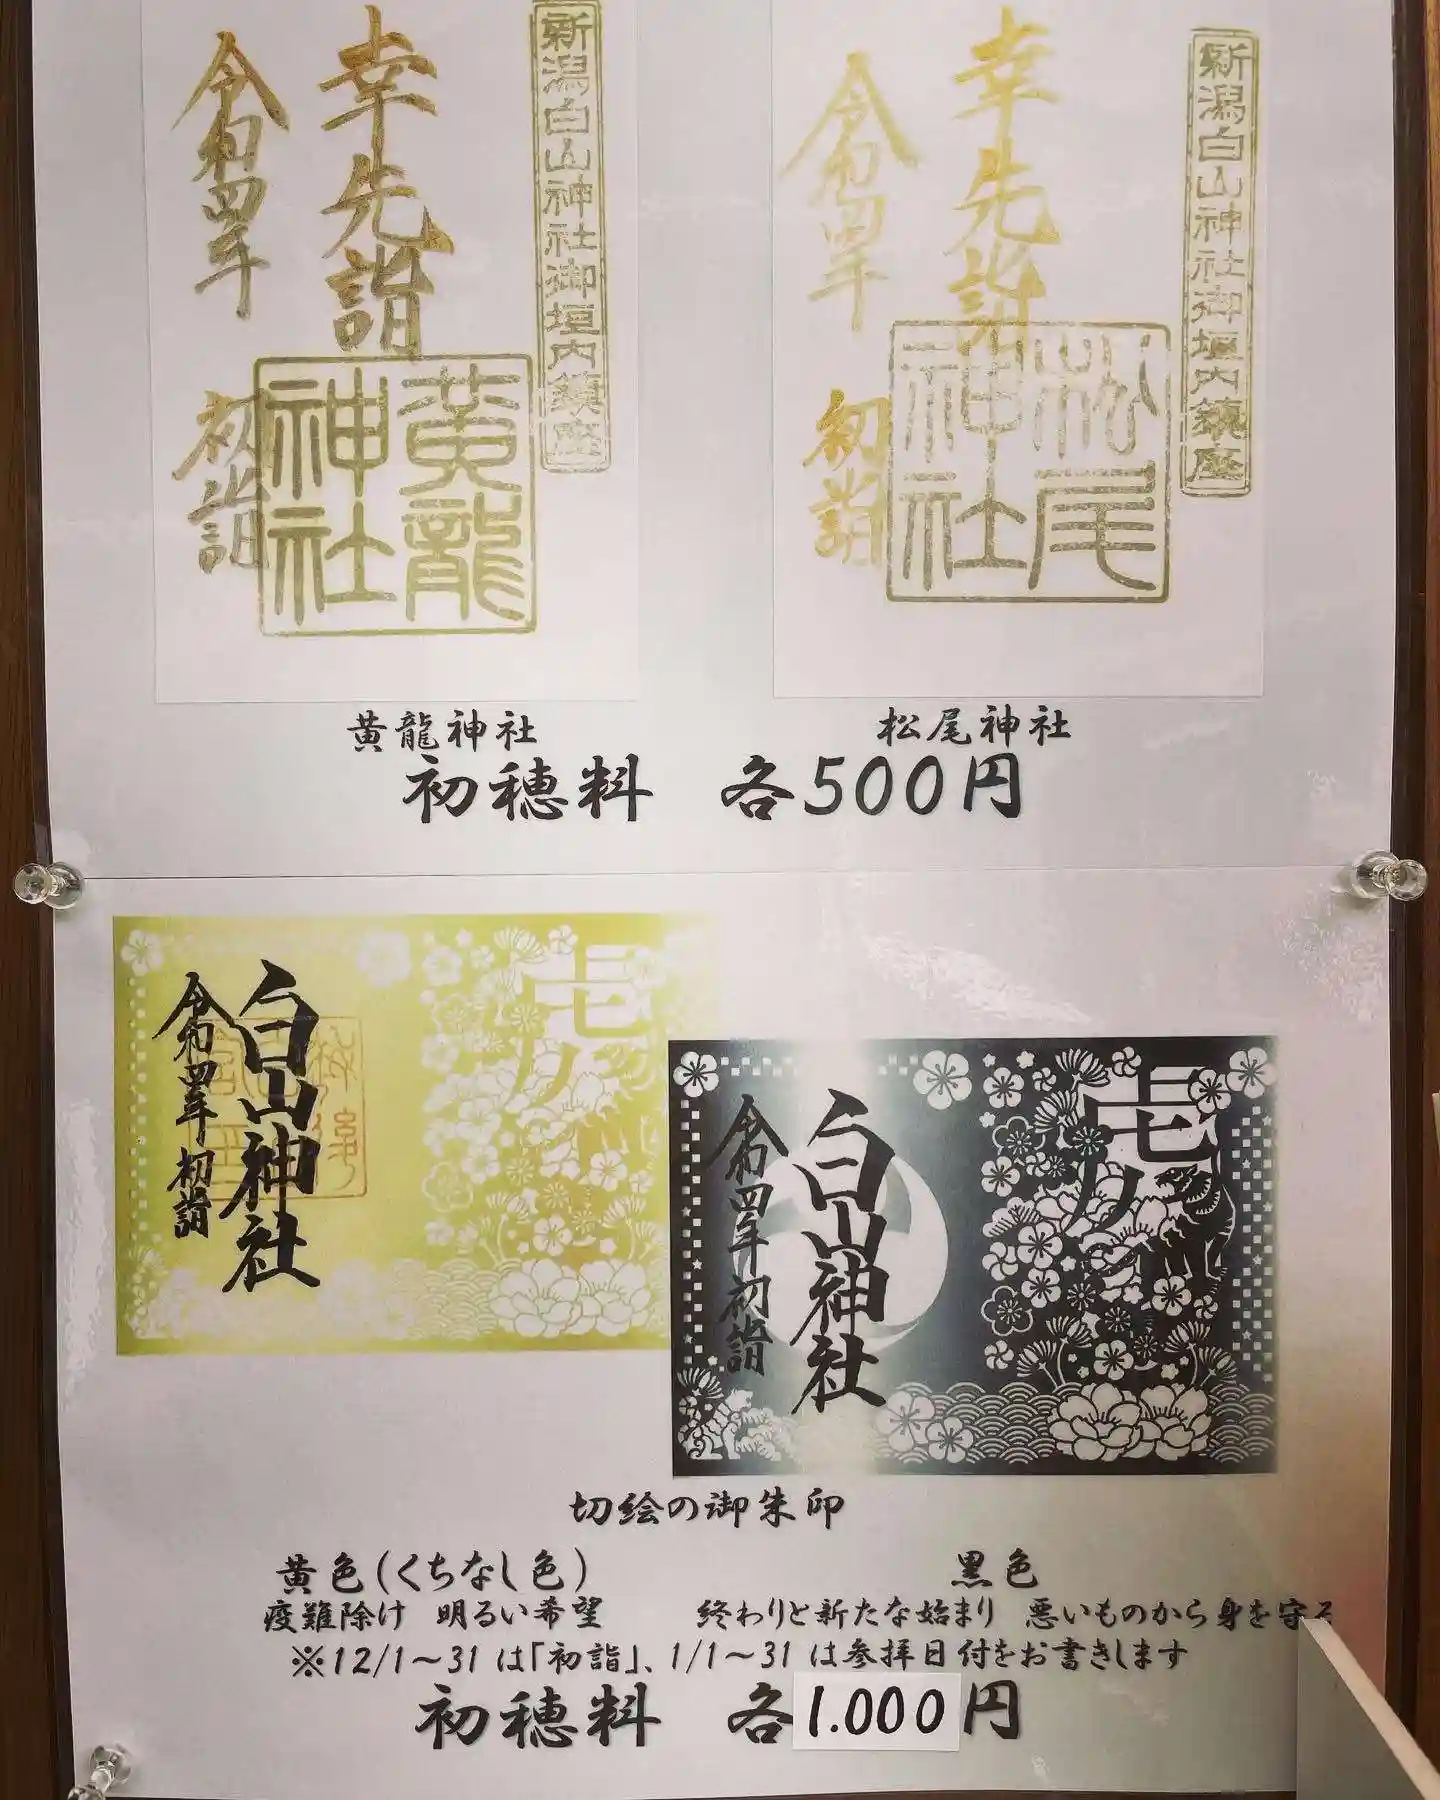 新潟白山神社御垣内鎮座
幸先詣
令和四年
初詣
黄龍神社
新潟白山神社御垣内鎮座
幸先詣
令和四年
初詣
松尾神社
黄龍神社
松尾神社
初穂料 各500円
壱ノ
白山神社
令和四年 初詣
壱ノ
白山神社
令和四年 初詣
切絵の御朱印
黄色(くちなし色)
疫難除け 明るい希望
黒色
終わりと新たな始まり 悪いものから身を守る
※12/1~31は「初詣」、1/1~31は参拝日付をお書きします
初穂料 各1.000円